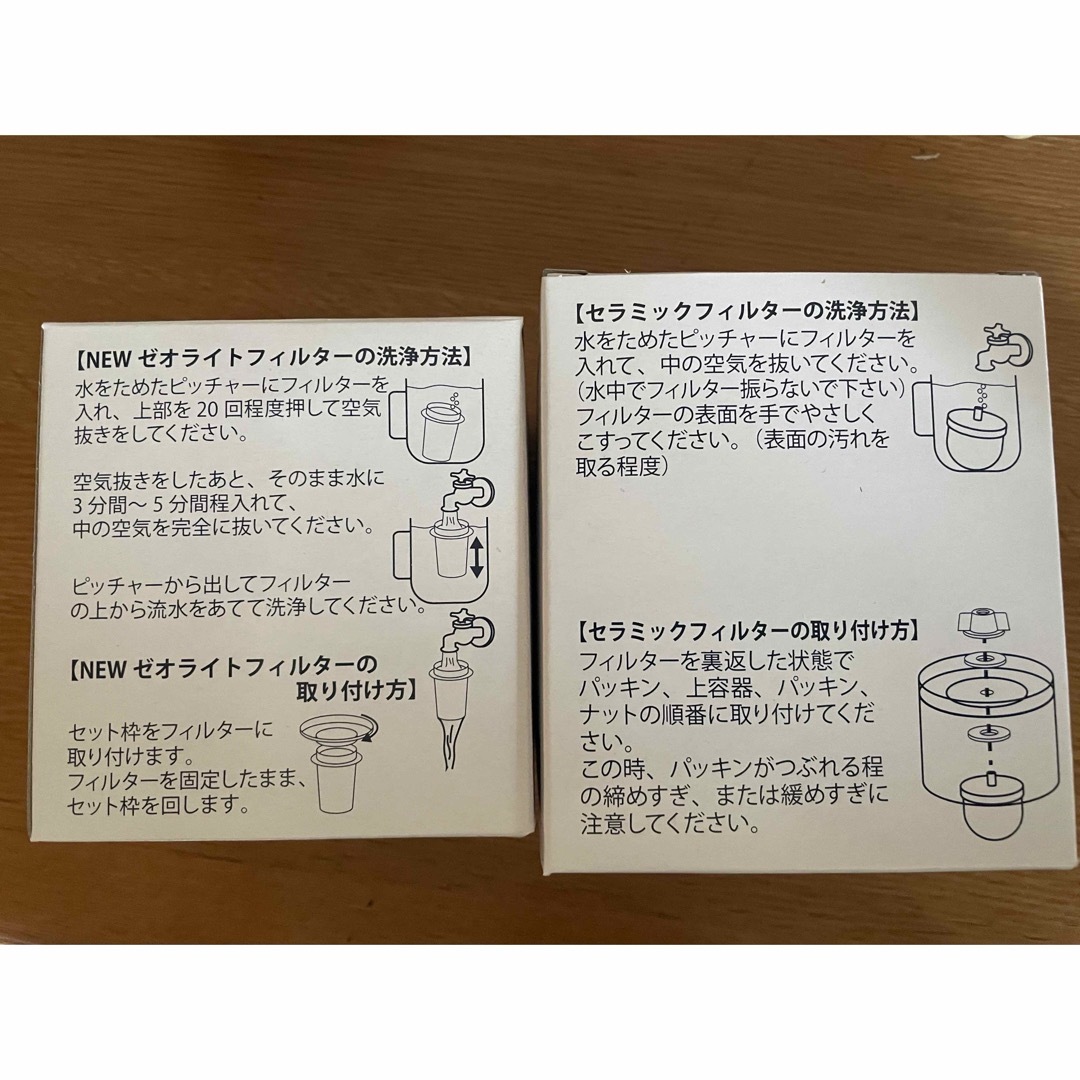 【NEW ゼオライトフィルターの洗浄方法】
水をためたピッチャーにフィルターを
入れ、上部を 20 回程度押して空気
抜きをしてください。
空気抜きをしたあと、そのまま水に
3 分間～ 5 分間程入れて、
中の空気を完全に抜いてください。
ピッチャーから出してフィルター
の上から流水をあてて洗浄してください。
【NEW ゼオライトフィルターの
取り付け方】
セット枠をフィルターに
取り付けます。
フィルターを固定したまま、
セット枠を回します。
【セラミックフィルターの洗浄方法】
水をためたピッチャーにフィルターを
入れて、中の空気を抜いてください。
（水中でフィルター振らないで下さい）
フィルターの表面を手でやさしく
こすってください。（表面の汚れを
取る程度）
【セラミックフィルターの取り付け方】
フィルターを裏返した状態で
パッキン、上容器、パッキン、
ナットの順番に取り付けてくだ
さい。
この時、パッキンがつぶれる程
の締めすぎ、または緩めすぎに
注意してください。